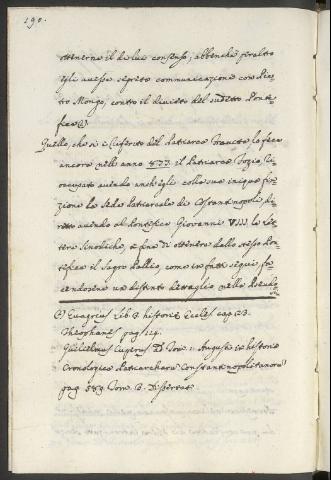 190.
ottenerne il di lui consenso; abbenchè peraltro
egli avesse segreto communicazione con Pie-
tro Mongo, contro il divieto del sudetto Ponte-
fice (*).
Quello, che si è riferito del Patriarca Fravita lo fece
ancora nell'anno 877. il Patriarca Fozio,
occupato avendo anch'egli colla sua iniqua
la Sede Patriarcale di Costantinopoli, di-
retto avendo al Pontefice Giovanni VIII. le Let-
tere Sinodiche, a fine di ottenere dallo stesso Pon-
tefice il Sagro Pallio, come in fatti seguì, fa-
cendosene un distinto dettaglio nella Pseudo
(*) Evagrius Lib. 3 historiæ Eccles. cap. 23.
Theophanes pag. 114.
Guilielmus Cuperus Tom. 1. Augusti in historia
Cronologica Patriarcharum Constantinopolitanorum
pag. Tom. 3. Dissertat.